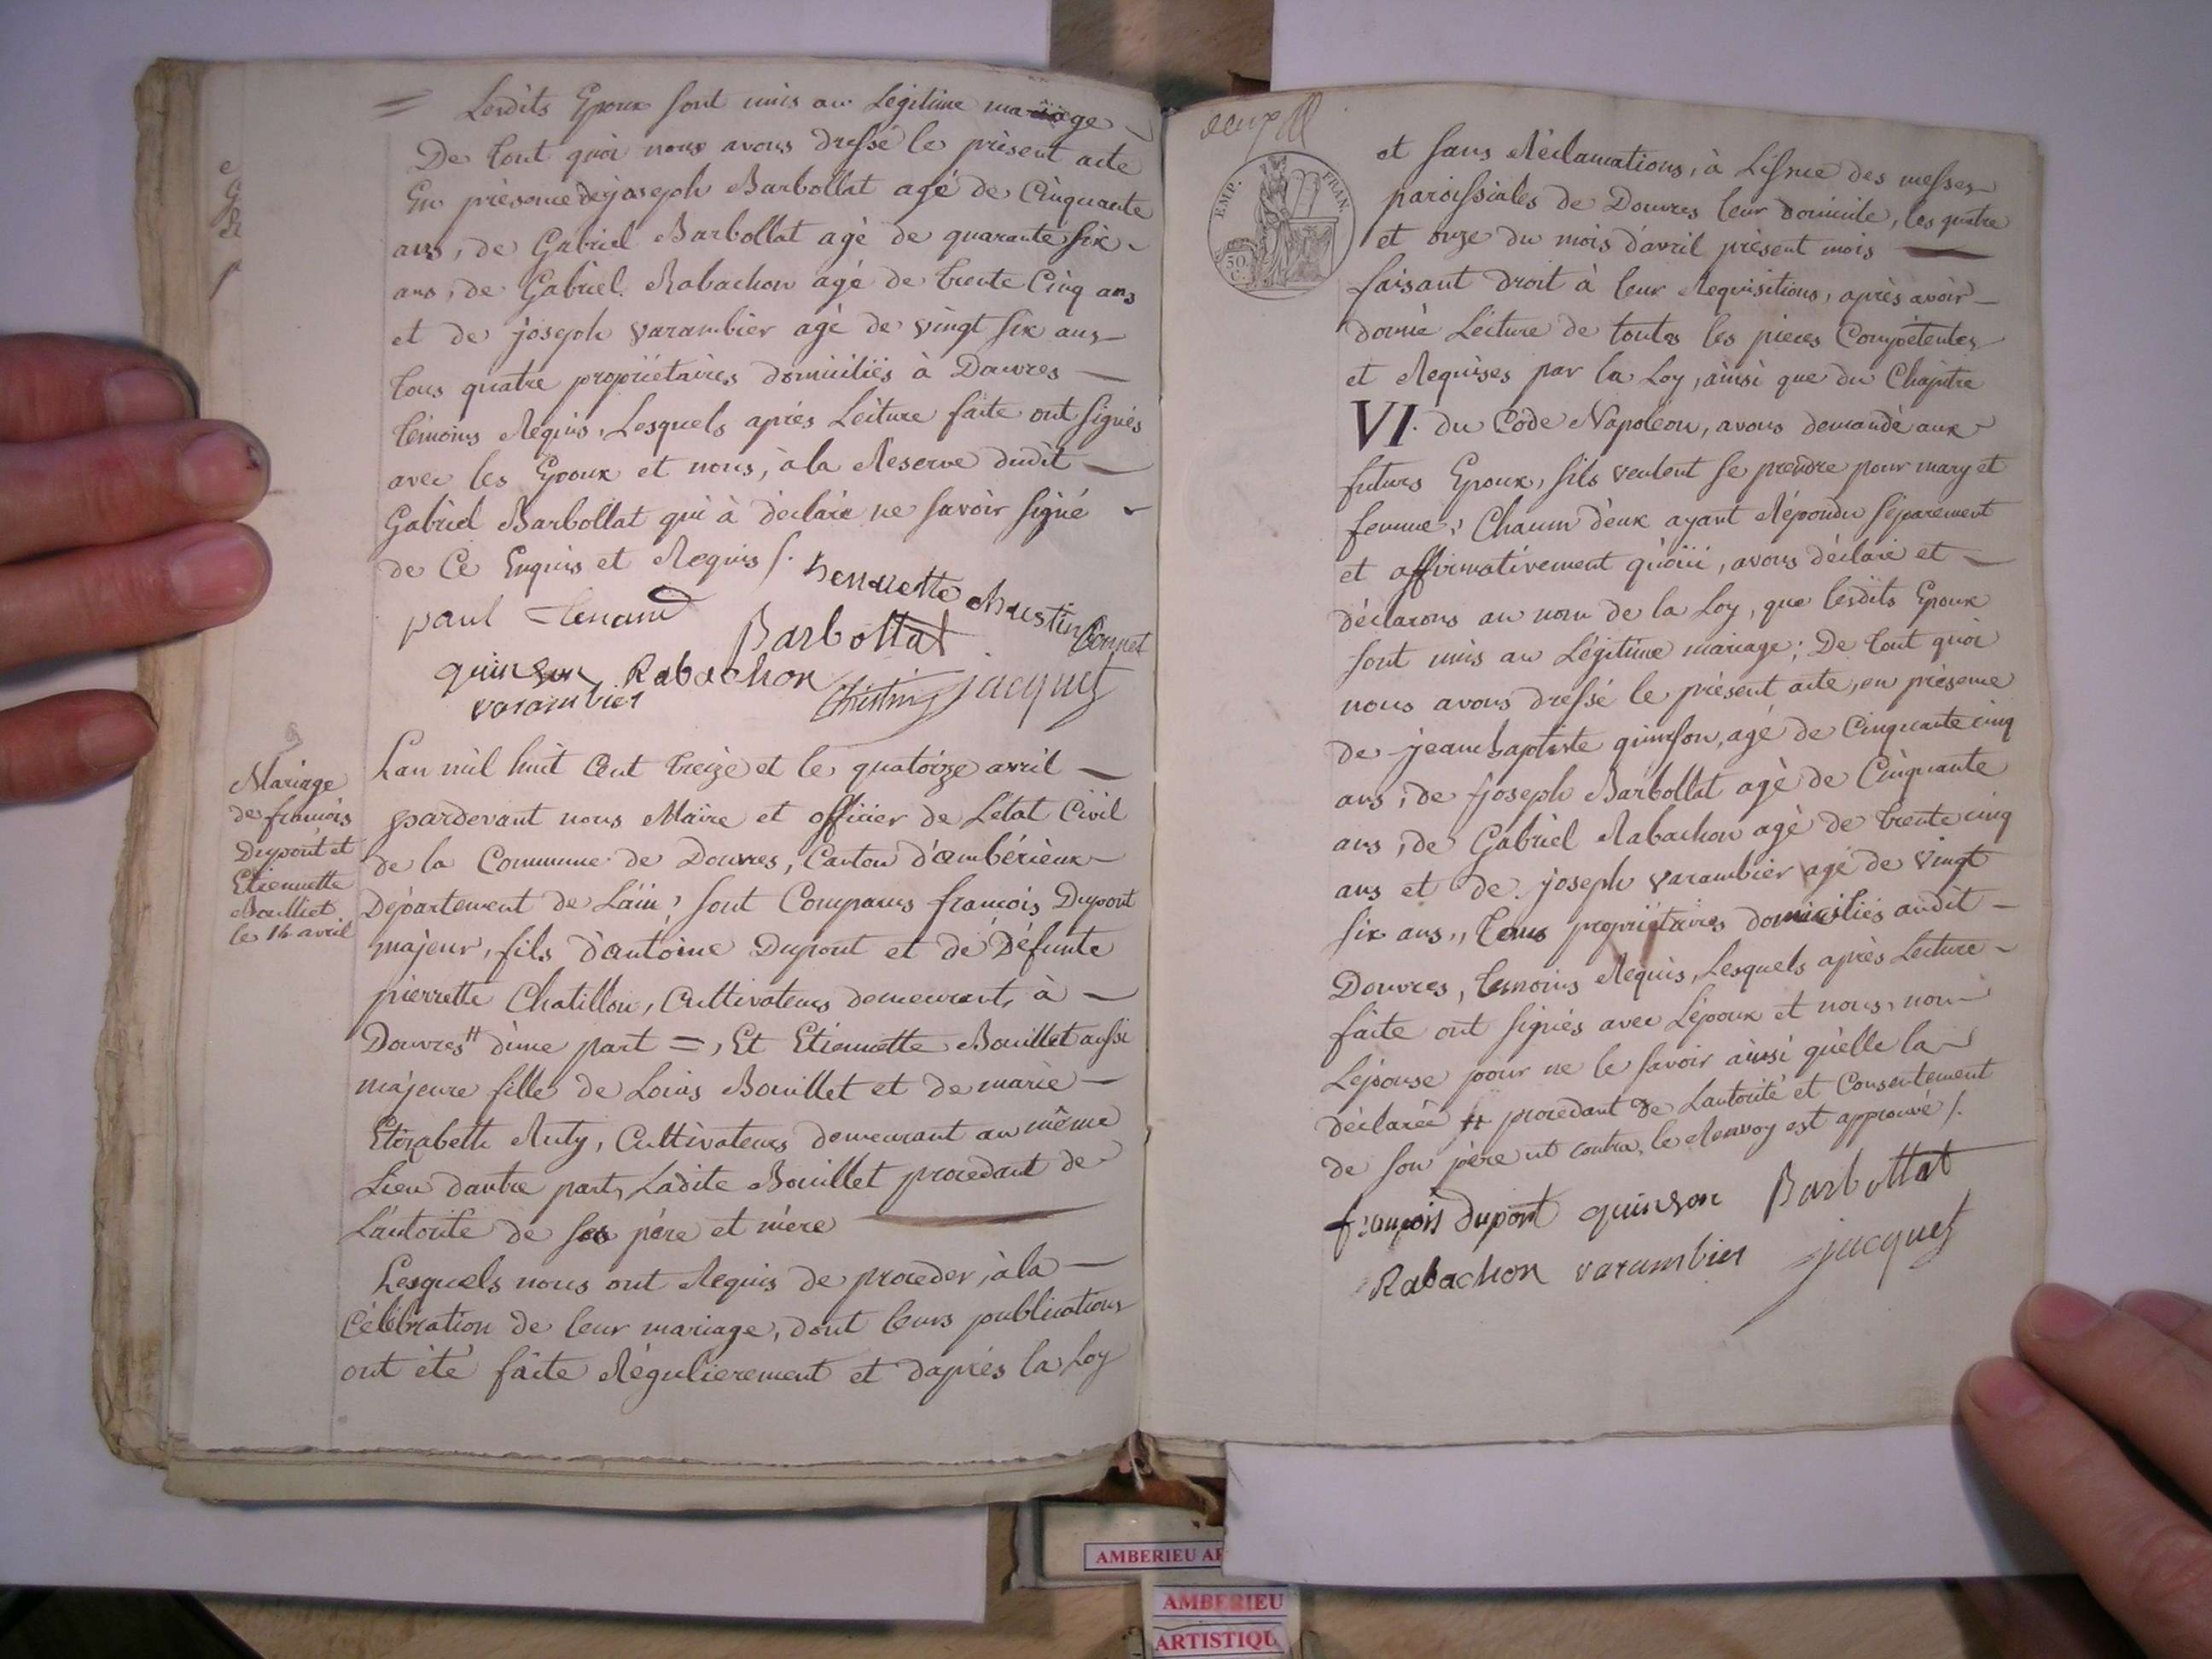 = Lesdits Epoux sont unis au Legitime mariage
De tout quoi nous avons dressé le présent acte
En présence de joseph Barbollat agé de Cinquante
ans, de Gabriel Barbollat agé de quarante six
ans, de Gabriel Rabachon agé de trente Cinq ans
et de joseph varambier agé de vingt six ans
tous quatre propriétaires domiciliés à Douvres
témoins Requis, Lesquels après Lecture faite ont signés
avec les Epoux et nous, à la Reserve dudit
Gabriel Barbollat qui à déclaré ne savoir signé
de Ce Enquis et Requis /.
paul
Barbollat
quinson Rabachon
varambier
jacquet
Mariage
de francois
Dupont et
Etiennette
Bouillet
le 14 avril
Lan mil huit Cent treize et le quatorze avril
pardevant nous Maire et officier de Létat Civil
de la Commune de Douvres, Canton d'ambérieux
Département de Lain, sont Comparus francois Dupont
majeur, fils d'antoine Dupont et de Défunte
pierrette Chatillon, Cultivateurs demeurant, à
Douvres # d'une part =, Et Etiennette Bouillet aussi
majeure fille de Louis Bouillet et de marie
Elizabeth Ruty, Cultivateurs demeurant au même
Lieu dautre part, Ladite Bouillet procedant de
L'autorité de ses père et mère
Lesquels nous ont Requis de proceder, à la
Célébration de leur mariage, dont leurs publications
ont été faite Régulierement et daprès la Loy
EMP. FRAN.
50
C.
et sans Réclamations, à Lissue des messes
paroissiales de Douvres leur domicile, les quatre
et onze du mois d'avril présent mois
faisant droit à leur Requisitions, après avoir
donné Lecture de toutes les pieces Compétentes
et Requises par la Loy, ainsi que du Chapitre
VI. du Code Napoleon, avons demandé aux
futurs Epoux, sils veulent se prendre pour mary et
femme; Chacun d'eux ayant Répondu séparement
et affirmativement qu'oui, avons déclaré et
déclarons au nom de la Loy, que lesdits Epoux
sont unis au Légitime mariage; De tout quoi
nous avons dressé le présent acte, en présence
de jean baptiste quinson, agé de Cinquante cinq
ans, de joseph Barbollat agé de Cinquante
ans, de Gabriel Rabachon agé de trente cinq
ans et de joseph varambier agé de vingt
six ans,, tous propriétaires domiciliés audit
Douvres, temoins Requis, Lesquels après Lecture
faite ont signés avec Lépoux et nous, non
Lépouse pour ne le savoir ainsi qu'elle la
déclarée # procedant de Lautorité et Consentement
de son père ut contra, le Renvoy est approuvé /.
françois dupont quinson Barbollat
Rabachon varambier jacquet
AMBERIEU
AMBERIEU
ARTISTIQU